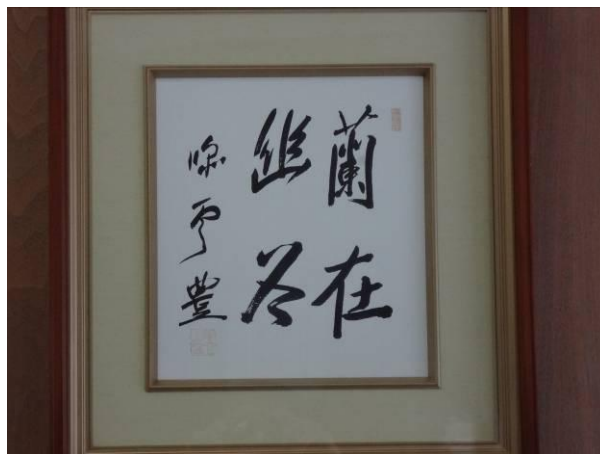 蘭在
幽谷
豊